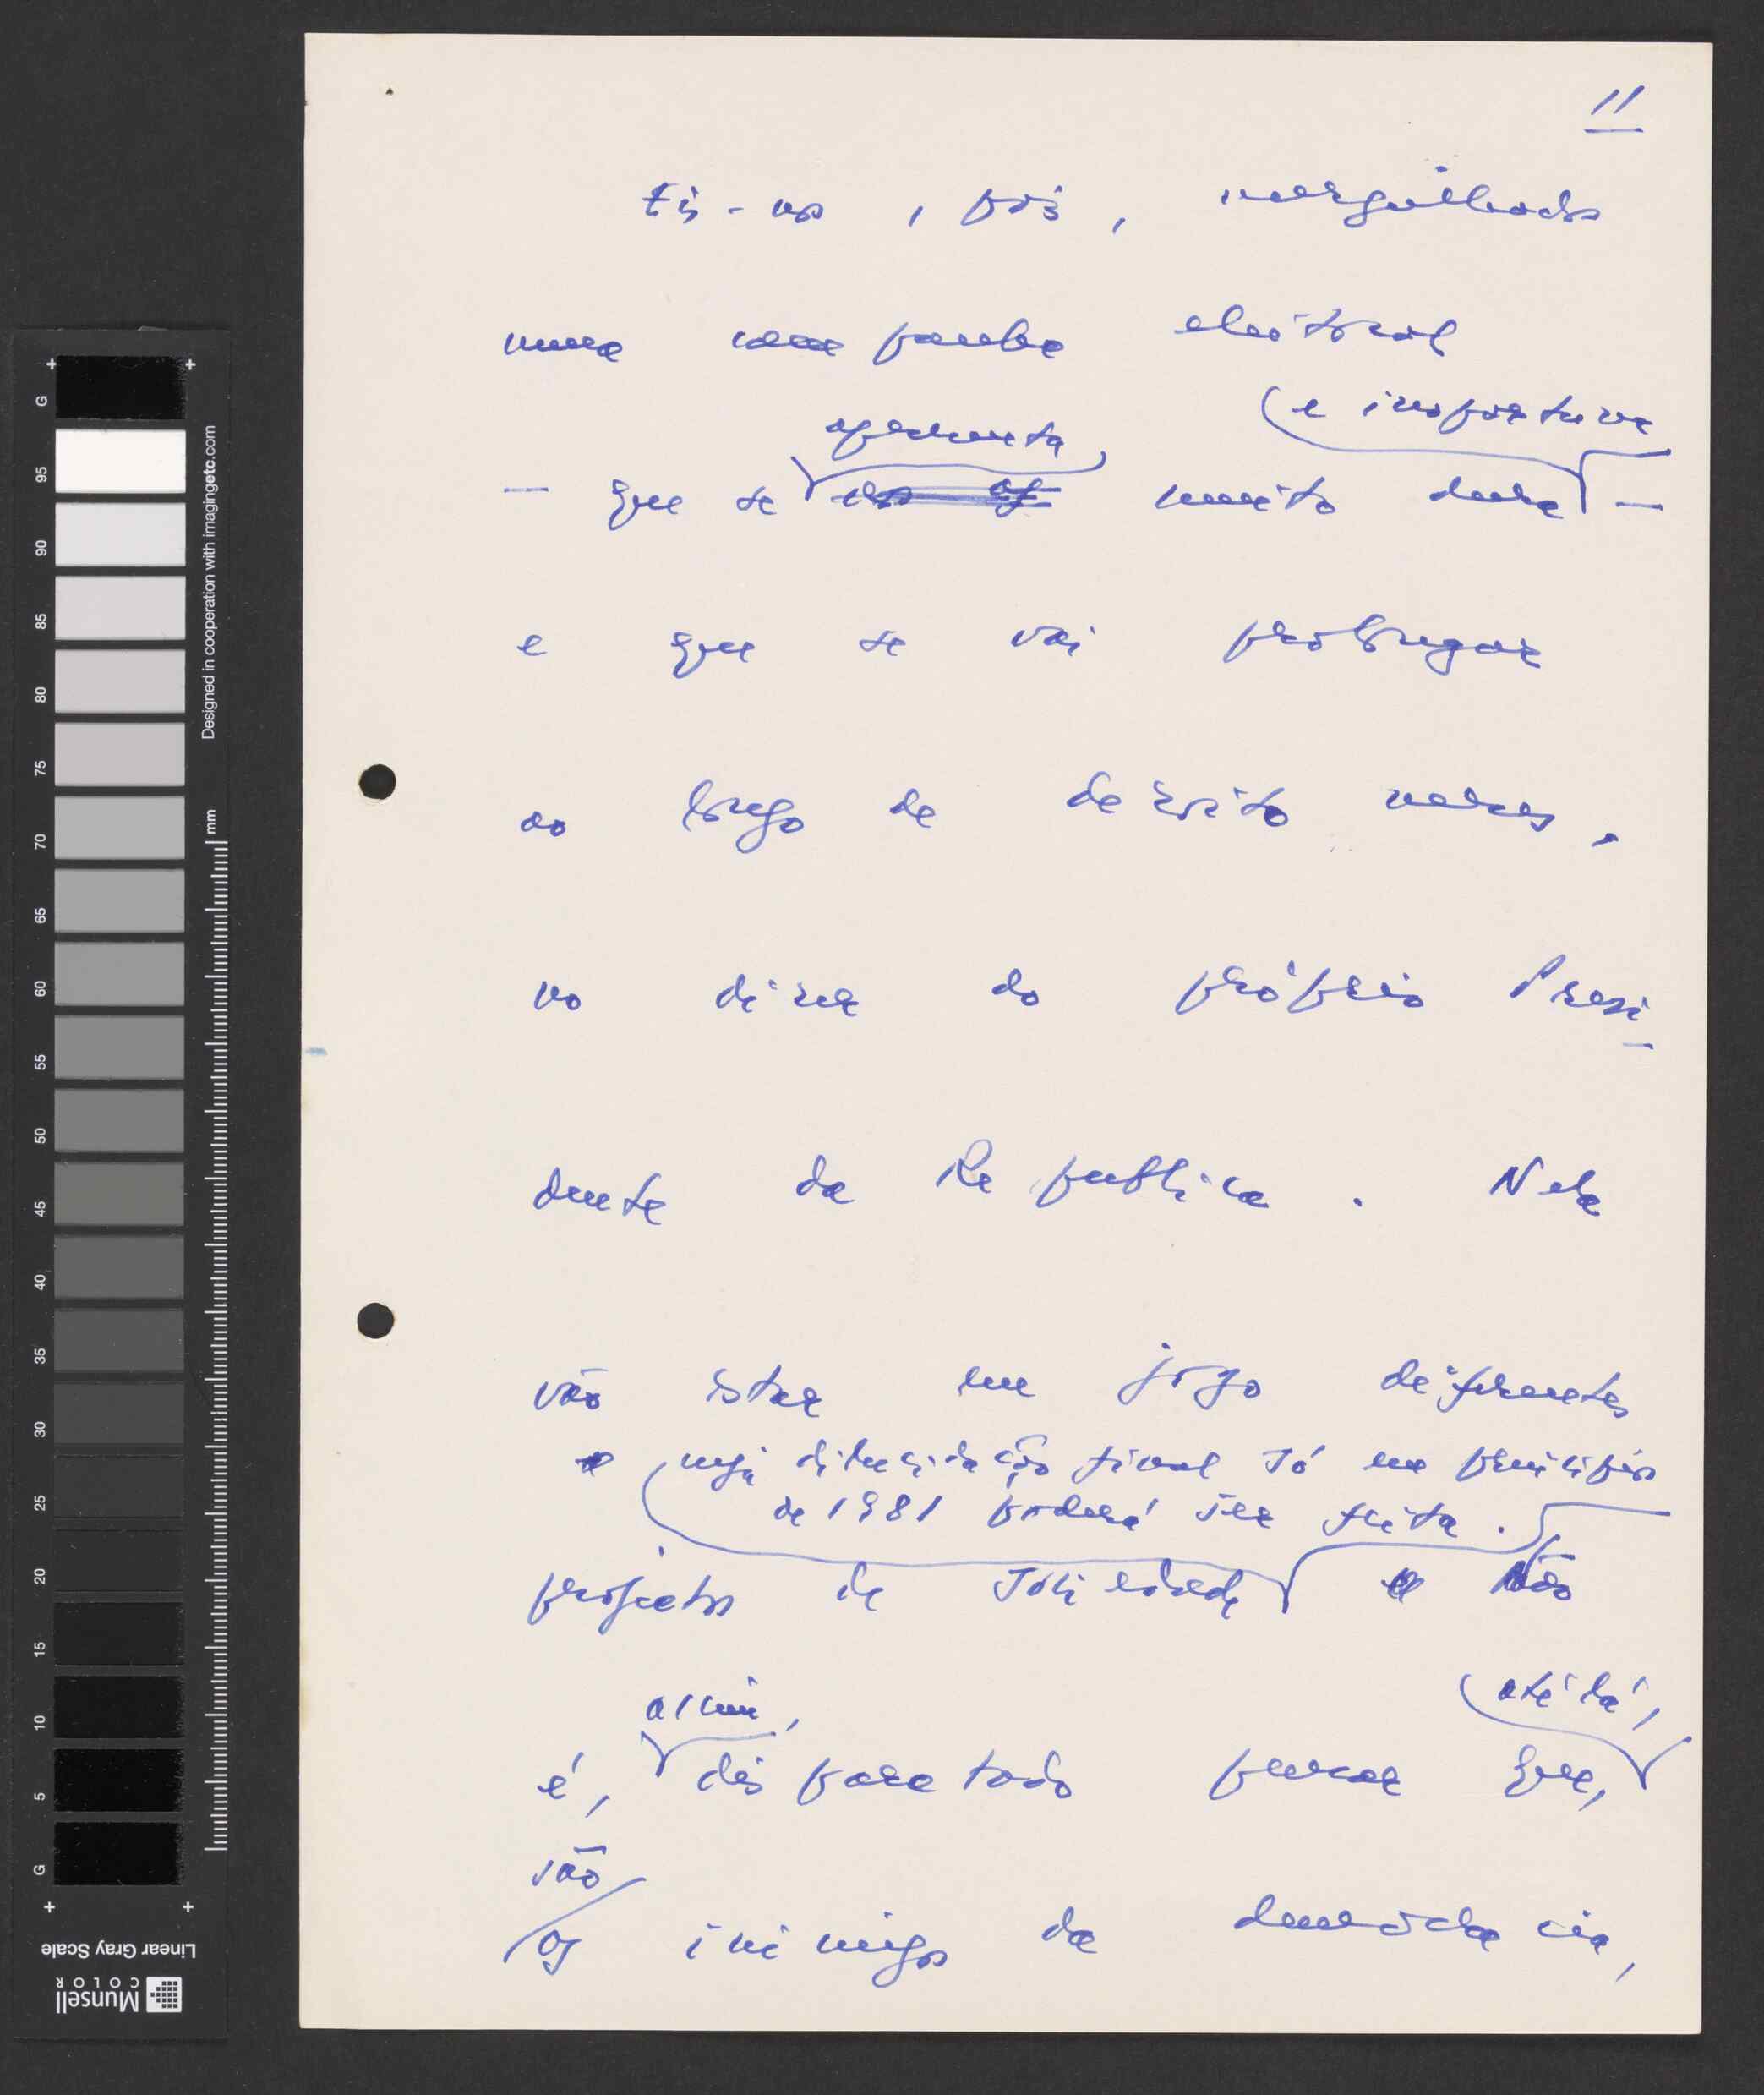 11
Eis-nos, pois, mergulhados
numa campanha eleitoral
e importuna
apresenta
- que se muito dura -
e que se vai prolongar
ao longo de dezoito meses,
no dizer do próprio Presi-
dente da Republica. Nela
vão estar em jogo diferentes
cuja dilucidação final só em princípios
de 1981 poderá ser feita.
projectos de sociedade Não
até lá,
assim,
é, disparatado pensar que,
são
os inimigos da democracia,
G 95 90 85 80 75 70 65 60 55 50 45 40 35 30 25 20 15 10 5 G
mm
Designed in cooperation with imagingetc.com
Linear Gray Scale
Munsell
COLOR